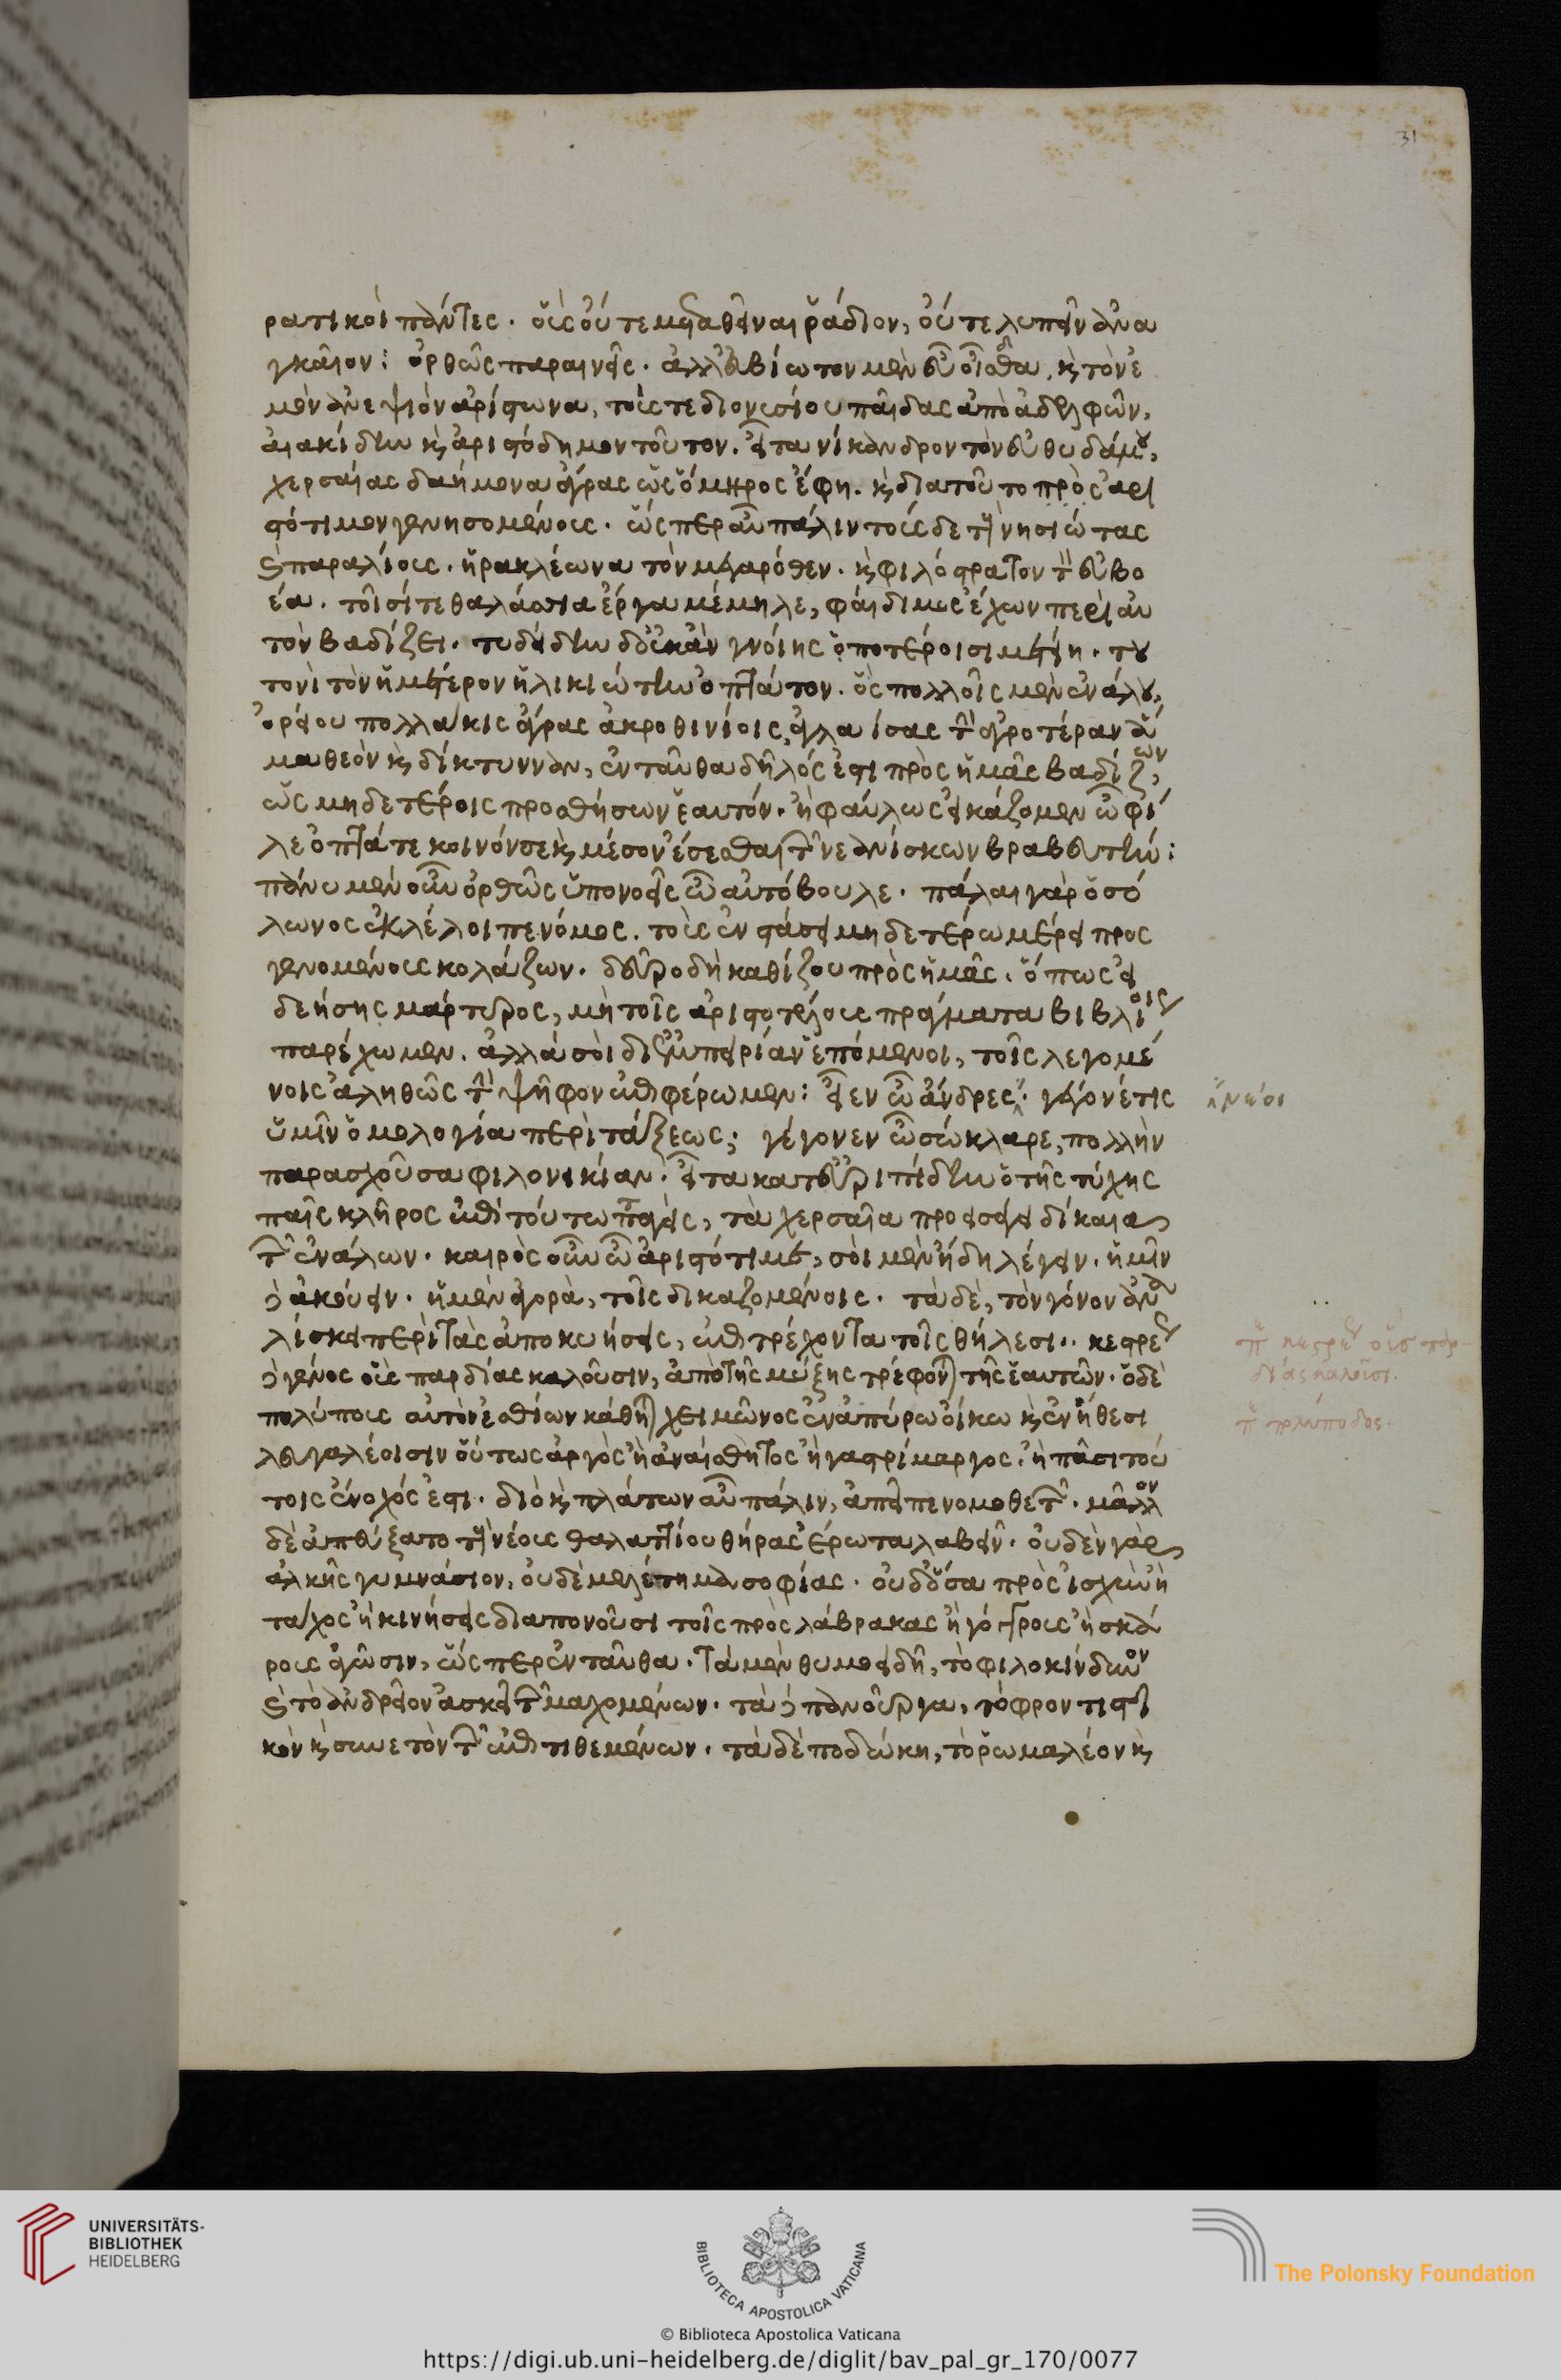 ρατικοὶ πάντες. οὓς οὔτε μεταθεῖναι ῥάδιον, οὔτε λυπεῖν ἀνα
γκαῖον: ὀρθῶς παραινεῖς. ἀλλ' εὐβίωτον μὲν εὖ οἶσθα, κ̀ τὸν ἐ
μὸν ἀνεψιὸν ἀρίστωνα, τούς τε διονυσίου παῖδας ἀπὸ ἀδελφῶν,
αἰακίδην κ̀ ἀριστόδημον τοῦτον. εἶτα νίκανδρον τὸν εὐθυδάμου,
χερσαίας δαήμονα ἄγρας ὡς ὅμηρος ἔφη. κ̀ διατοῦτο πρὸς ἀρι
στότιμον γενησομένους. ὥσπερ αὖ πάλιν τούς δε τ̀ νησιώτας
κ̀ παραλίους. ἡρακλέωνα τὸν μεγαρόθεν. κ̀ φιλόστρατον τ̀ εὐβο
έα. τοῖσί τε θαλάσσια ἔργα μέμηλε, φαίδιμος ἔχων περὶ αὑ
τὸν βαδίζει. τυδείδην δ' οὐκ ἂν γνοίης ὁποτέροισι μετείη. του
τονὶ τὸν ἡμέτερον ἡλικιώτην ὀπτάτον. ὃς πολλοῖς μὲν ἐνάλου,
ὀρείου πολλάκις ἄγρας ἀκροθινίοις, ἀγλαΐσας τ̀ ἀγροτέραν ἅ
μα θεὸν κ̀ δίκτυνναν, ἐνταῦθα δῆλός ἐστι πρὸς ἡμᾶς βαδίζων,
ὡς μηδετέροις προσθήσων ἑαυτόν. ἢ φαύλως εἰκάζομεν ὦ φί
λε ὀπτάτε κοινόν σε κ̀ μέσον ἔσεσθαι τ̀ νεανίσκων βραβευτήν:
πάνυ μὲν οὖν ὀρθῶς ὑπονοεῖς ὦ αὐτόβουλε. πάλαι γὰρ ὁ σό
λωνος ἐκλέλοιπε νόμος. τοὺς ἐν στάσει μηδετέρω μέρει προς
γενομένους κολάζων. δεῦρο δὴ καθίζου πρὸς ἡμᾶς. ὅπως εἰ
δεήσῃς μάρτυρος, μὴ τοῖς ἀριστοτέλους πράγματα βιβλίοις
παρέχωμεν. ἀλλὰ σοὶ δι' ἐμπειρίαν ἑπόμενοι, τοῖς λεγομέ
νοις ἀληθῶς τ̀ ψῆφον ἐπιφέρωμεν: εἶεν ὦ ἄνδρες. γέγονέ τις
ὑμῖν ὁμολογία περὶ τάξεως; γέγονεν ὦ σώκλαρε, πολλὴν
παρασχοῦσα φιλονικίαν. εἶτα κατ' εὐριπίδην ὁ τῆς τύχης
παῖς κλῆρος ἐπὶ τούτω ταγεὶς, τὰ χερσαῖα προεισάγει δίκαια,
τ̀ ἐνάλων. καιρὸς οὖν ὦ ἀριστότιμε, σοὶ μὲν ἤδη λέγειν. ἡμῖν
δ' ἀκούειν. ἡ μὲν ἀγορὰ, τοῖς δικαζομένοις. τὰ δὲ, τὸν γόνον ἀνα
λίσκει περὶ τὰς ἀποκυήσεις, ἐπιτρέχοντα τοῖς θήλεσι. κεστρεὺς
δ' γένος οὓς παρδίας καλοῦσιν, ἀπὸ τῆς μύξης τρέφονται τῆς ἑαυτῶν. ὁ δὲ
πολύπους αὑτὸν ἐσθίων κάθηται χειμῶνος ἐν ἀπύρω οἴκω κ̀ ἐν ἤθεσι
λευγαλέοισιν οὕτως ἀργὸς ἢ ἀναίσθητος ἢ γαστρίμαργος. ἢ πᾶσι τού
τοις ἔνοχός ἐστι. διὸ κ̀ πλάτων αὖ πάλιν, ἀπεῖπε νομοθετῶν. μᾶλλον
δὲ ἀπεύξατο τ̀ νέους θαλαττίου θήρας ἔρωτα λαβεῖν. οὐδὲν γὰρ,
ἀλκῆς γυμνάσιον, οὐδὲ μελέτημα σοφίας. οὐδ' ὅσα πρὸς ἰσχὺν ἢ
τάχος ἢ κινήσεις διαπονοῦσι τοῖς πρὸς λάβρακας ἢ γόγγρους ἢ σκά
ρους ἀγῶσιν, ὥσπερ ἐνταῦθα. τὰ μὲν θυμοειδῆ, τὸ φιλοκίνδυνον
κ̀ τὸ ἀνδρεῖον ἀσκεῖ τ̀ μαχομένων. τὰ δ' πανοῦργα, τὸ φροντιστι
κὸν κ̀ συνετὸν τ̀ ἐπιτιθεμένων. τὰ δὲ ποδώκη, τὸ ῥωμαλέον κ̀
31
π̀ κεστρεὺς οὓς παρ-
δίας καλοῦσι.
π̀ πολύποδος.
UNIVERSITÄTS-
BIBLIOTHEK
HEIDELBERG
BIBLIOTECA APOSTOLICA VATICANA
The Polonsky Foundation
© Biblioteca Apostolica Vaticana
https://digi.ub.uni-heidelberg.de/diglit/bav_pal_gr_170/0077